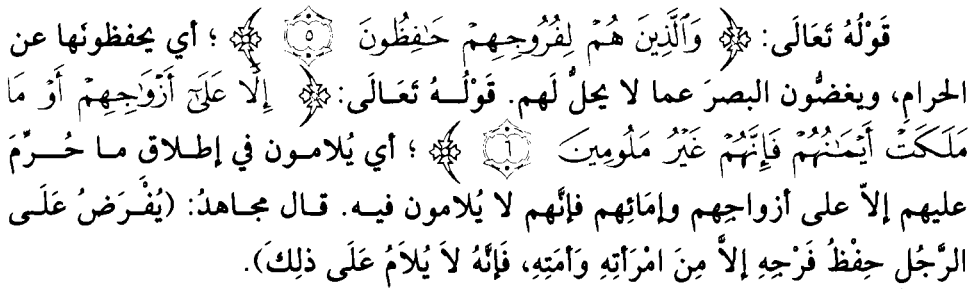 قَوْلُهُ تَعَالَى: ﴿ وَٱلَّذِينَ هُمۡ لِفُرُوجِهِمۡ حَٰفِظُونَ ٥ ﴾ ؛ أي يحفظونَها عن
الحرامِ، ويغضُّون البصرَ عما لا يحلُّ لَهم. قَوْلُـهُ تَعَـالَى: ﴿ إِلَّا عَلَىٰٓ أَزۡوَٰجِهِمۡ أَوۡ مَا
مَلَكَتۡ أَيۡمَٰنُهُمۡ فَإِنَّهُمۡ غَيۡرُ مَلُومِينَ ٦ ﴾ ؛ أي يُلامـون في إطـلاق مـا حُـــرِّمَ
عليهم إلاّ على أزواجِهم وإمَائِهم فإنَّهم لا يُلامون فيـه. قـال مجـاهدُ: (يُفْـرَضُ عَلَـى
الرَّجُلِ حِفْظُ فَرْجِهِ إلاَّ مِنَ امْرَأتِهِ وَأمَتِهِ، فَإنَّهُ لاَ يُلاَمُ عَلَى ذلِكَ).